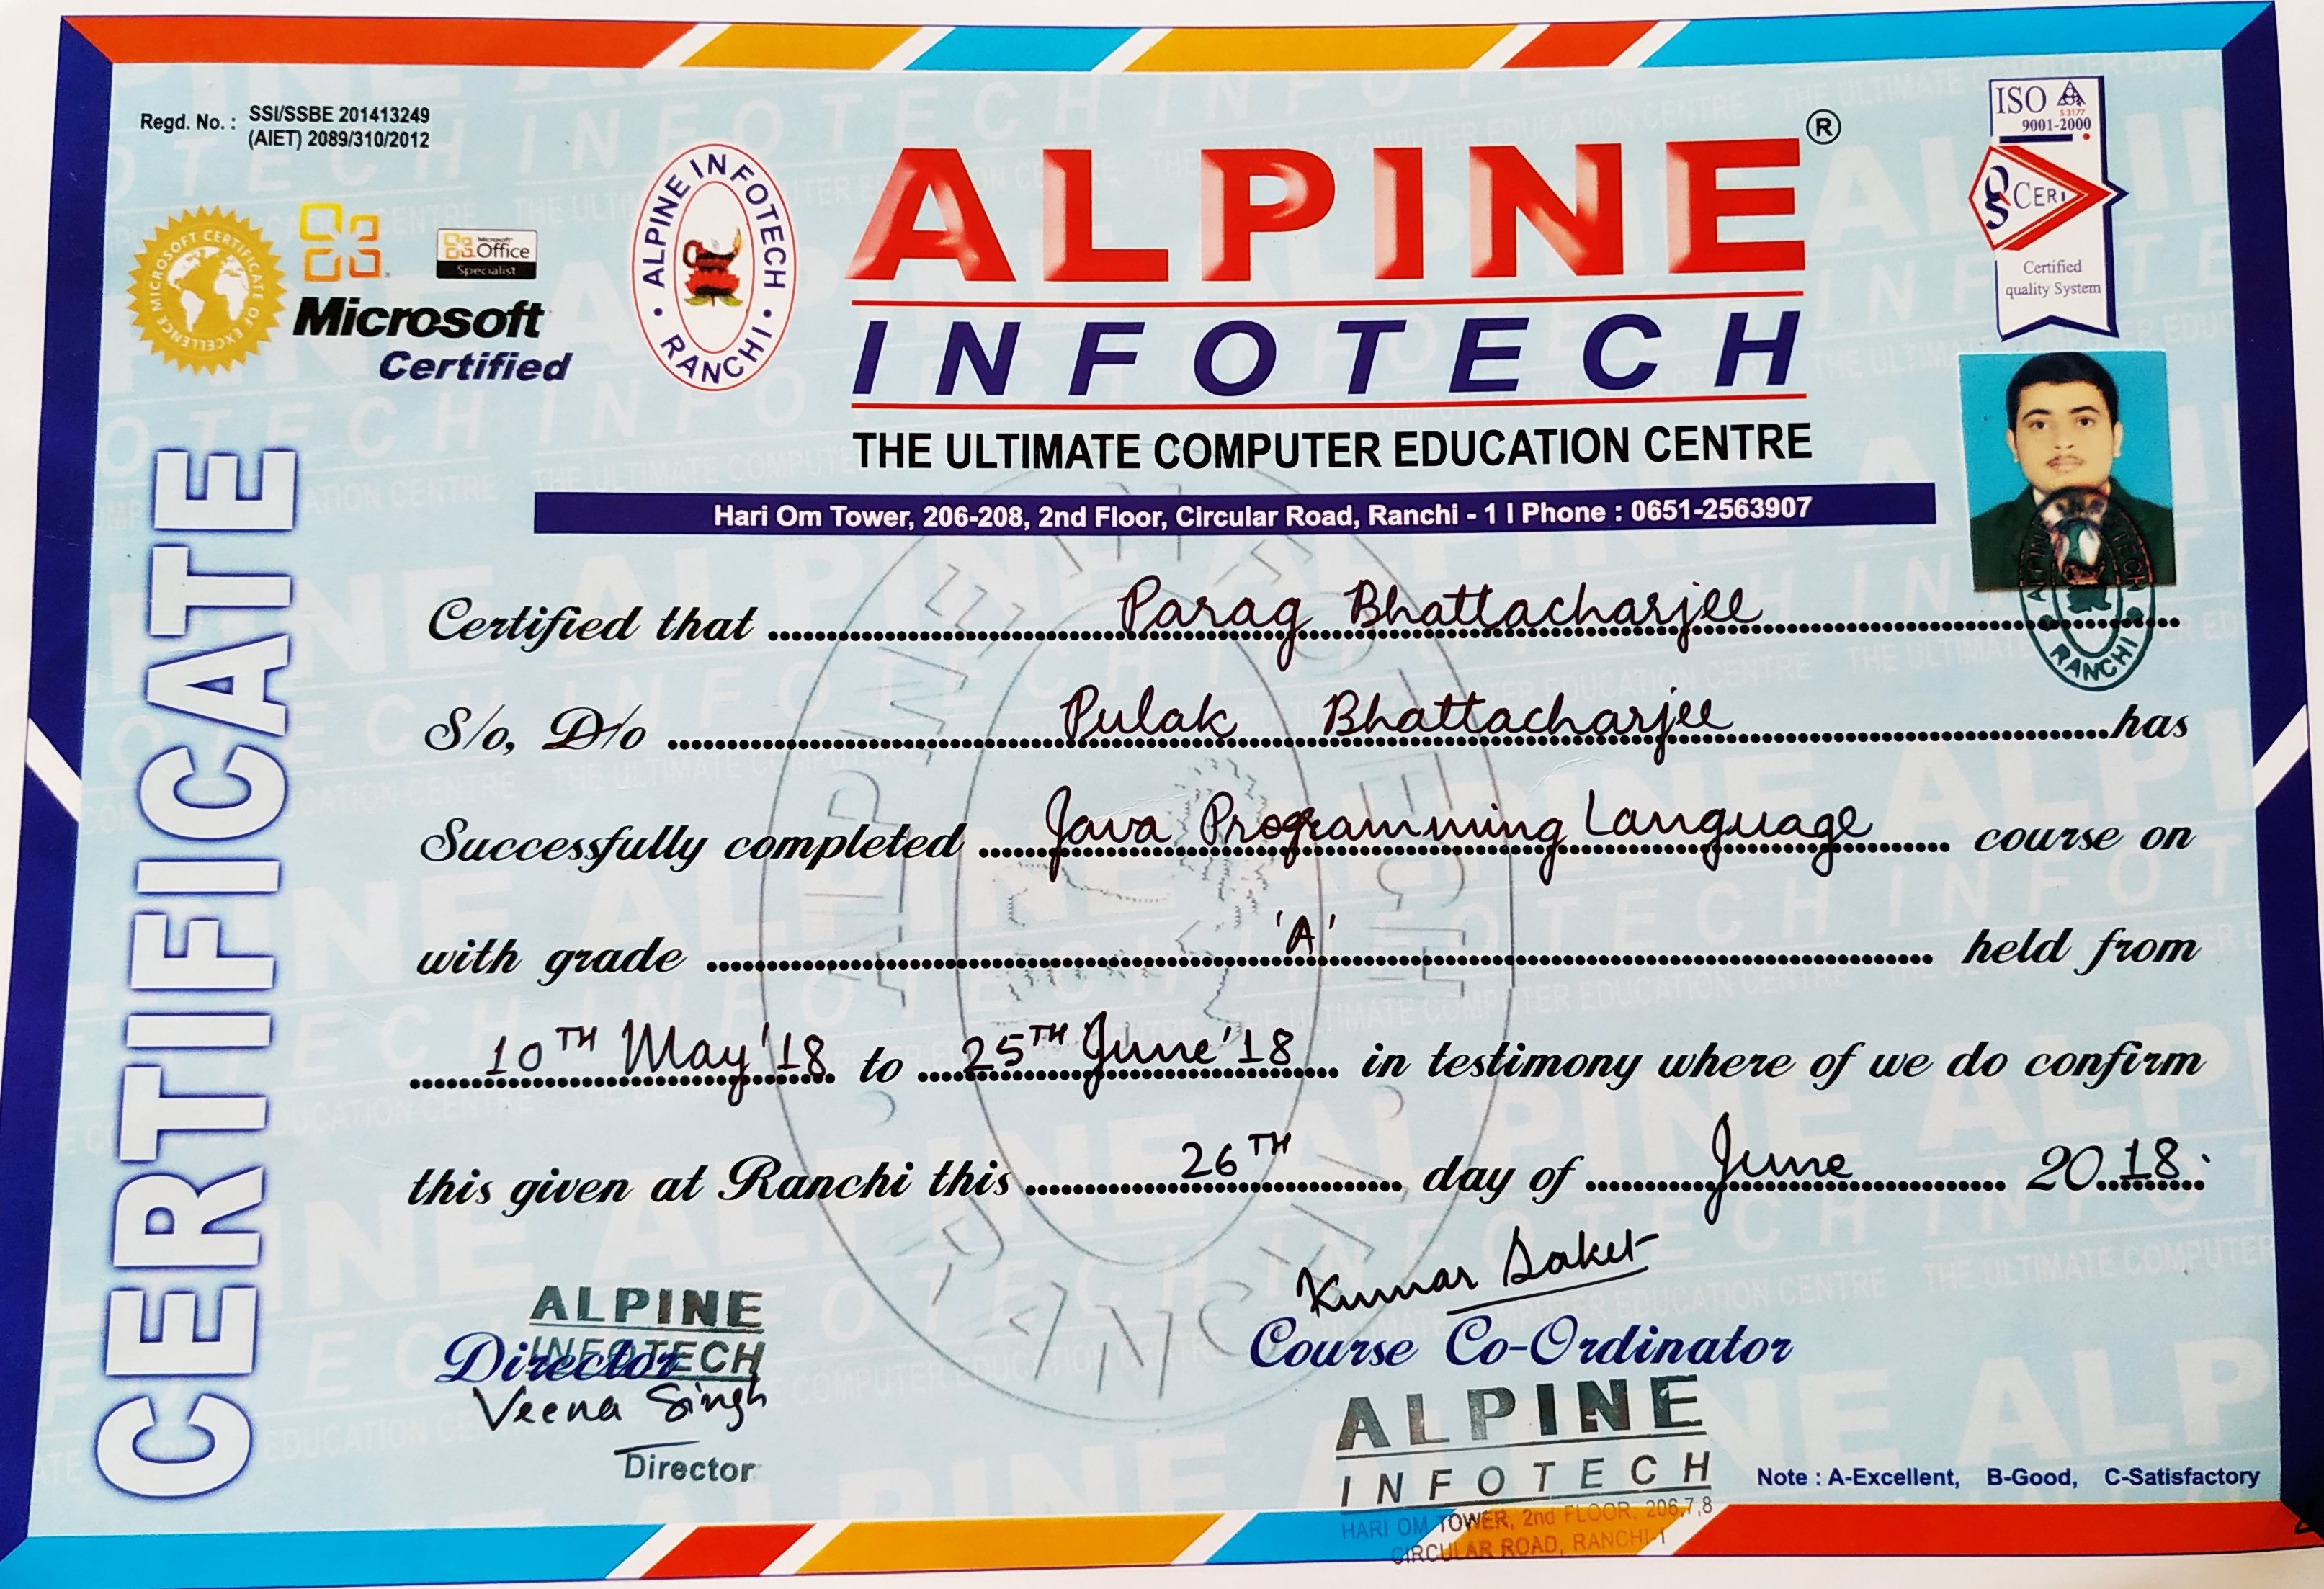 Regd. No. : SSI/SSBE 201413249
(AIET) 2089/310/2012
MICROSOFT CERTIFICATE OF EXCELLENCE
Microsoft Office
Specialist
Microsoft
Certified
ALPINE INFOTECH
RANCHI
ALPINE®
INFOTECH
THE ULTIMATE COMPUTER EDUCATION CENTRE
Hari Om Tower, 206-208, 2nd Floor, Circular Road, Ranchi - 1 I Phone : 0651-2563907
ISO
9001-2000
QS CERT
Certified
quality System
CERTIFICATE
Certified that Parag Bhattacharjee
S/o, D/o Pulak Bhattacharjee has
Successfully completed Java Programming Language course on
with grade 'A' held from
10TH May'18 to 25TH June'18 in testimony where of we do confirm
this given at Ranchi this 26TH day of June 2018.
RANCHI
ALPINE
INFOTECH
Director
Veena Singh
Director
Kumar Saket
Course Co-Ordinator
ALPINE
INFOTECH
HARI OM TOWER, 2nd FLOOR, 206,7,8
CIRCULAR ROAD, RANCHI-1
Note : A-Excellent, B-Good, C-Satisfactory